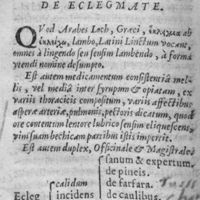 DE ECLEGMATE.
QVod Arabes Loch, Græci, ἐκλειγμα ab
ἐκλείχω, lambo, Latini Linctum vocant,
omnes à lingendo seu sensim lambendo, à forma
vtendi nomine desumpto.
Est autem medicamentum consistentiâ mellis,
vel mediâ inter syrupum & opiatam, ex
variis thoracicis compositum, variis affectibus
asperæ arteriæ, pulmonis, pectoris dicatum, quod
ore contentum lentore lubrico sensim eliquescens,
vim suam bechicam partibus istis impertit.
Est autem duplex, Officinale & Magistrale
sanum & expertum.
de pineis.
calidum
de farfara.
Ecleg
incidens
de caulibus.